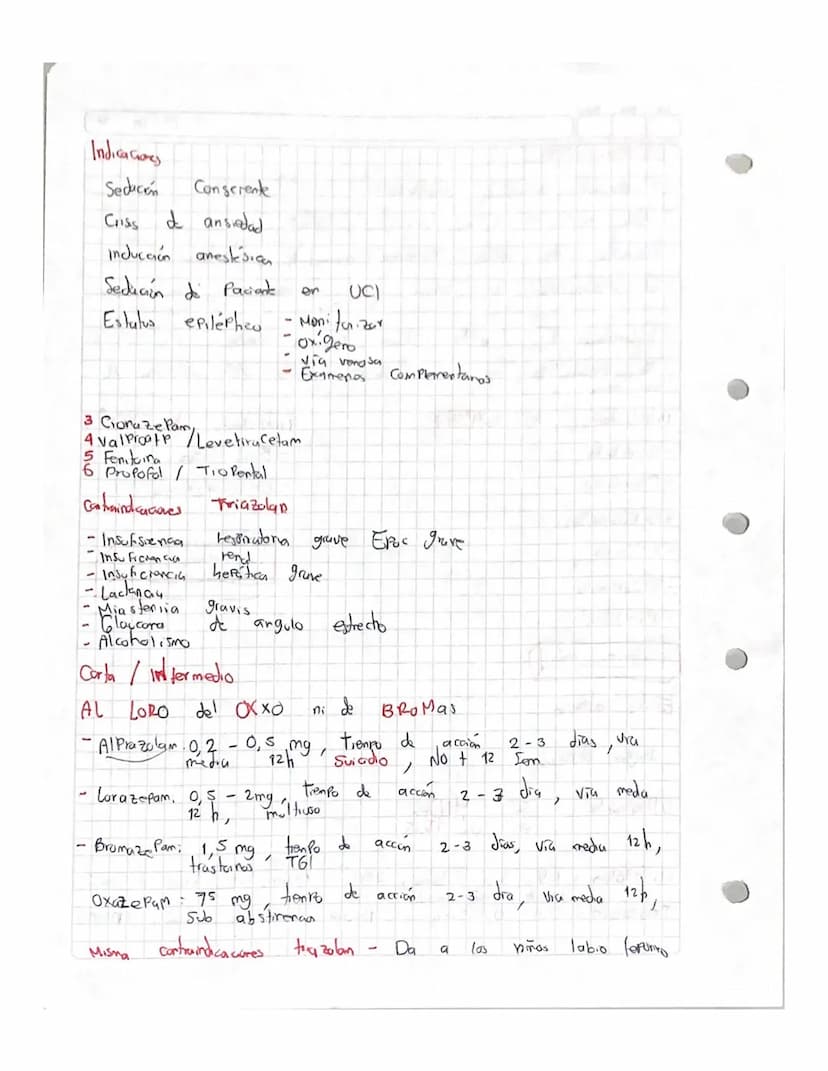 Indicaciones
Sedación Consciente
Criss d ansiedad
inducción anestésica
Sedación de Paciente en UCI
Estatus epiléptico - Monitorizar
- oxígeno
- vía venosa
- Exámenes complementarios
3 ClonazePam
4 ValProato /Levetiracetam
5 Fenitoina
6 ProPofol / TioPental
Contraindicaciones Triazolan
- Insuficiencia respiratoria grave Epoc grave
- Insuficiencia renal
- Insuficiencia hepática grave
- Lactancia
- Miastenia gravis
- Glaucoma de angulo estrecho
- Alcoholismo
Corta / intermedio
AL LORO del OXXO ni de BROMas
- AlPrazolam. 0,2 - 0,5 mg, tiempo de acción 2-3 dias, vía
media 12h Suicidio, No + 12 Sem
- Lorazepam. 0,5 - 2mg, tiempo de acción 2-3 dia, vía media
12 h, multiuso
- BromazePam: 1,5 mg, tiempo de acción 2-3 días, vía media 12h,
trastornos TGI
OxazePam : 75 mg, tiempo de acción 2-3 dia, via media 12h,
Sub abstinencia
Misma contraindicaciones triazolan - Da a los niños labio leporino